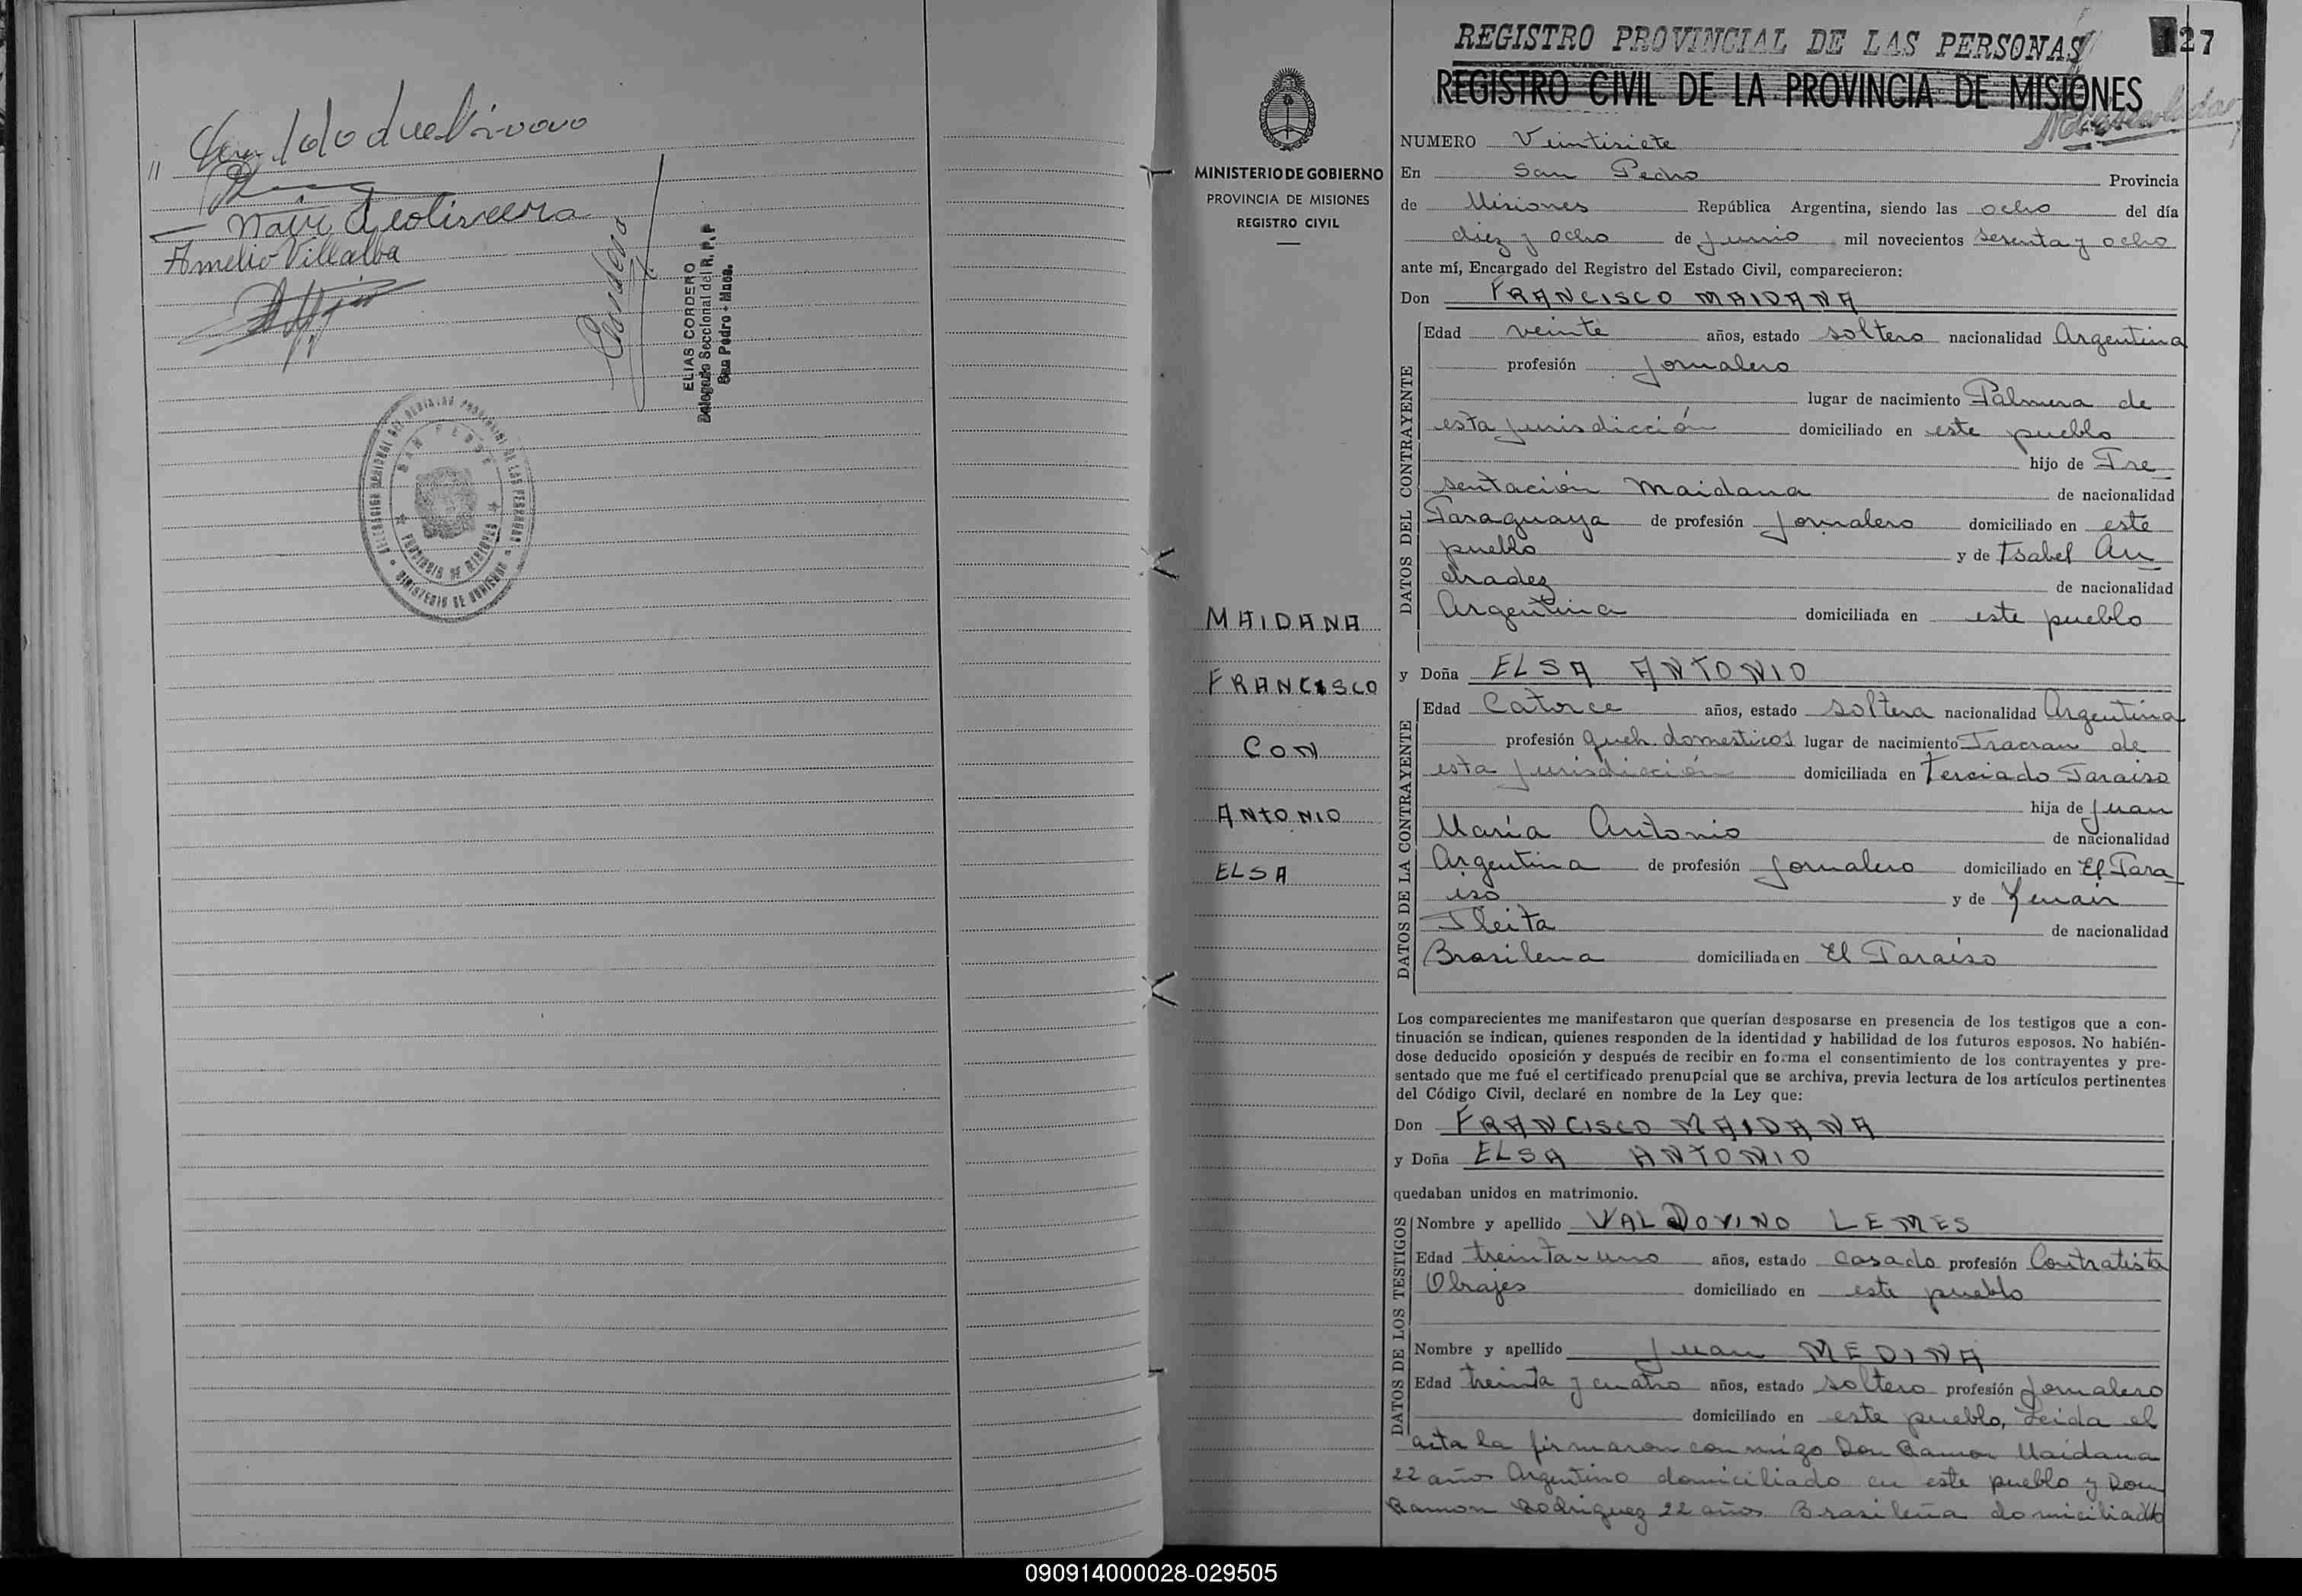 Amelio Villalba
ELIAS CORDERO
Delegado Seccional del R. P. P
San Pedro - Mnes.
SAN PEDRO
PROVINCIA DE MISIONES
REGISTRO PROVINCIAL DE LAS PERSONAS
127
REGISTRO CIVIL DE LA PROVINCIA DE MISIONES
MINISTERIO DE GOBIERNO
PROVINCIA DE MISIONES
REGISTRO CIVIL
MAIDANA
FRANCISCO
CON
ANTONIO
ELSA
NUMERO Veintisiete
En San Pedro Provincia
de Misiones República Argentina, siendo las ocho del día
diez y ocho de Junio mil novecientos sesenta y ocho
ante mí, Encargado del Registro del Estado Civil, comparecieron:
Don FRANCISCO MAIDANA
DATOS DEL CONTRAYENTE
Edad veinte años, estado soltero nacionalidad Argentina
profesión Jornalero
lugar de nacimiento Palmera de
esta jurisdicción domiciliado en este pueblo
hijo de Pre
sentación Maidana de nacionalidad
Paraguaya de profesión Jornalero domiciliado en este
pueblo y de Isabel An
dradez de nacionalidad
Argentina domiciliada en este pueblo
y Doña ELSA ANTONIO
DATOS DE LA CONTRAYENTE
Edad Catorce años, estado soltera nacionalidad Argentina
profesión queh. domesticos lugar de nacimiento Pracran de
esta jurisdicción domiciliada en Terciado Paraiso
hija de Juan
María Antonio de nacionalidad
Argentina de profesión Jornalero domiciliado en El Para
iso y de
Fleita de nacionalidad
Brasilena domiciliada en El Paraiso
Los comparecientes me manifestaron que querían desposarse en presencia de los testigos que a con-
tinuación se indican, quienes responden de la identidad y habilidad de los futuros esposos. No habién-
dose deducido oposición y después de recibir en forma el consentimiento de los contrayentes y pre-
sentado que me fué el certificado prenupcial que se archiva, previa lectura de los artículos pertinentes
del Código Civil, declaré en nombre de la Ley que:
Don FRANCISCO MAIDANA
y Doña ELSA ANTONIO
quedaban unidos en matrimonio.
DATOS DE LOS TESTIGOS
Nombre y apellido VALDOVINO LEMES
Edad treinta y uno años, estado casado profesión Contratista
Obrajes domiciliado en este pueblo
Nombre y apellido Juan MEDINA
Edad treinta y cuatro años, estado soltero profesión Jornalero
domiciliado en este pueblo, Leida el
acta la firmaron conmigo Don Ramon Maidana
22 años Argentino domiciliado en este pueblo y Don
Ramon Rodriguez 22 años Brasileña domiciliado
090914000028-029505